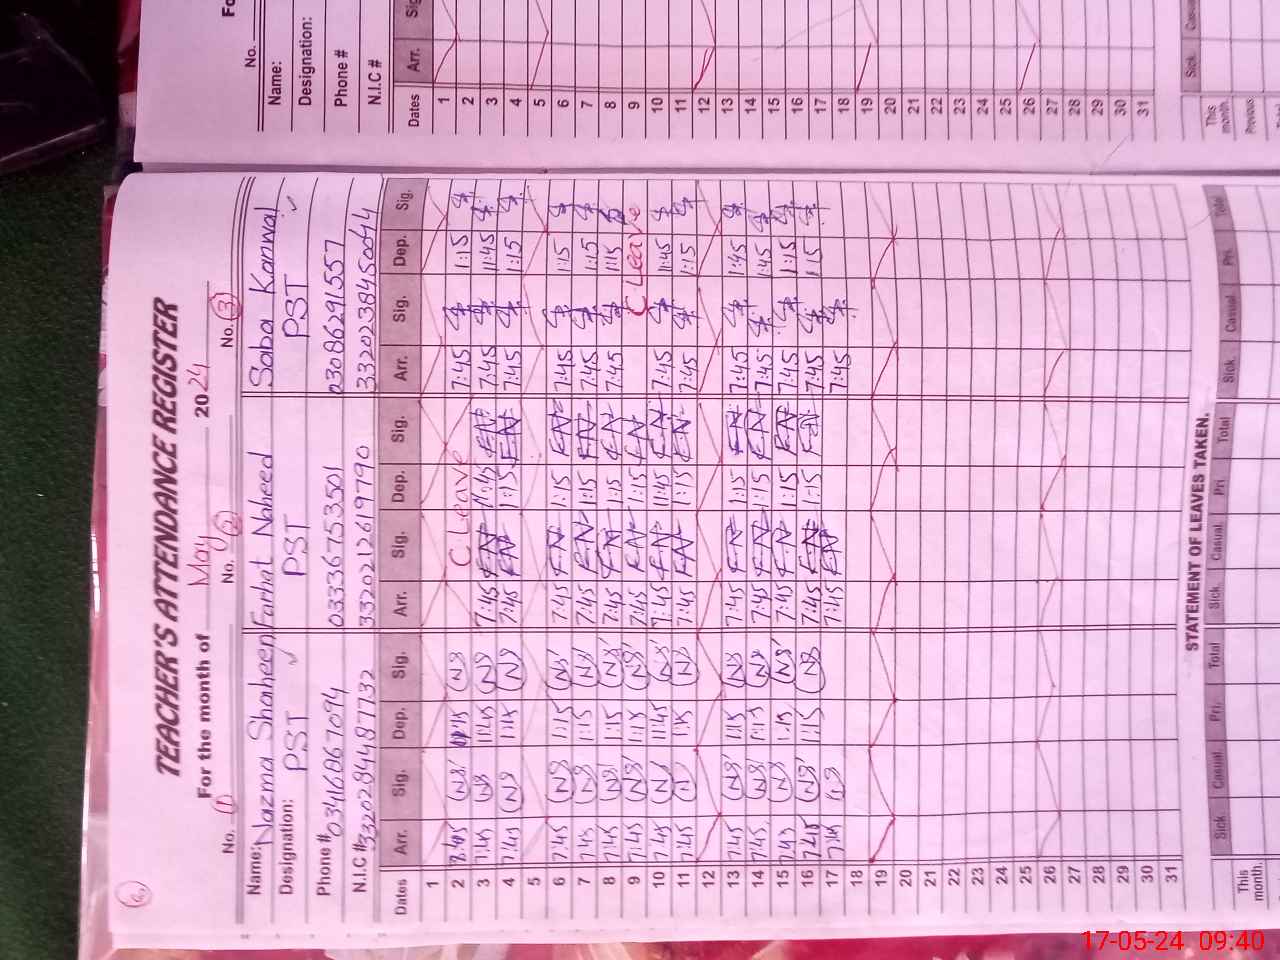 TEACHER'S ATTENDANCE REGISTER
For the month of May 2024
No. 1 No. 2 No. 3
Name: Nazma Shaheen Farhat Naheed Saba Kanwal
Designation: PST PST PST
Phone # 03416067094 03336753501 03086291557
N.I.C # 3320284487732 3320212619790 3320238450644
Dates Arr. Sig. Dep. Sig. Arr. Sig. Dep. Sig. Arr. Sig. Dep. Sig.
1
2 NS NS C Leave 7:45 1:15
3 7:45 NS 11:45 NS 7:45 FN 11:45 FN 7:45 11:45
4 7:45 NS 1:15 NS 7:45 FN 1:15 FN 7:45 1:15
5
6 7:45 NS 1:15 NS 7:45 FN 1:15 FN 7:45 1:15
7 7:45 NS 1:15 NS 7:45 FN 1:15 FN 7:45 1:15
8 7:45 NS 1:15 NS 7:45 FN 1:15 FN 7:45 1:15
9 7:45 NS 1:15 NS 7:45 FN 1:15 FN C Leave
10 7:45 NS 11:45 NS 7:45 FN 11:45 FN 7:45 11:45
11 7:45 1:15 NS 7:45 FN 1:15 FN 7:45 1:15
12
13 7:45 NS 1:15 NS 7:45 FN 1:15 FN 7:45 1:45
14 7:45 NS 1:15 NS 7:45 FN 1:15 FN 7:45 1:45
15 7:45 NS 1:15 NS 7:45 FN 1:15 FN 7:45 1:15
16 7:45 NS 1:15 NS 7:45 FN 1:15 FN 7:45 1:15
17 7:45 NS 7:45 FN 7:45
18
19
20
21
22
23
24
25
26
27
28
29
30
31
STATEMENT OF LEAVES TAKEN.
Sick Casual Pri. Total Sick. Casual. Pri. Total Sick. Casual Pri. Total
This month.
No.
Name:
Designation:
Phone #
N.I.C #
Dates Arr. Sig
1
2
3
4
5
6
7
8
9
10
11
12
13
14
15
16
17
18
19
20
21
22
23
24
25
26
27
28
29
30
31
Sick. Casual
This month.
Previous
17-05-24 09:40